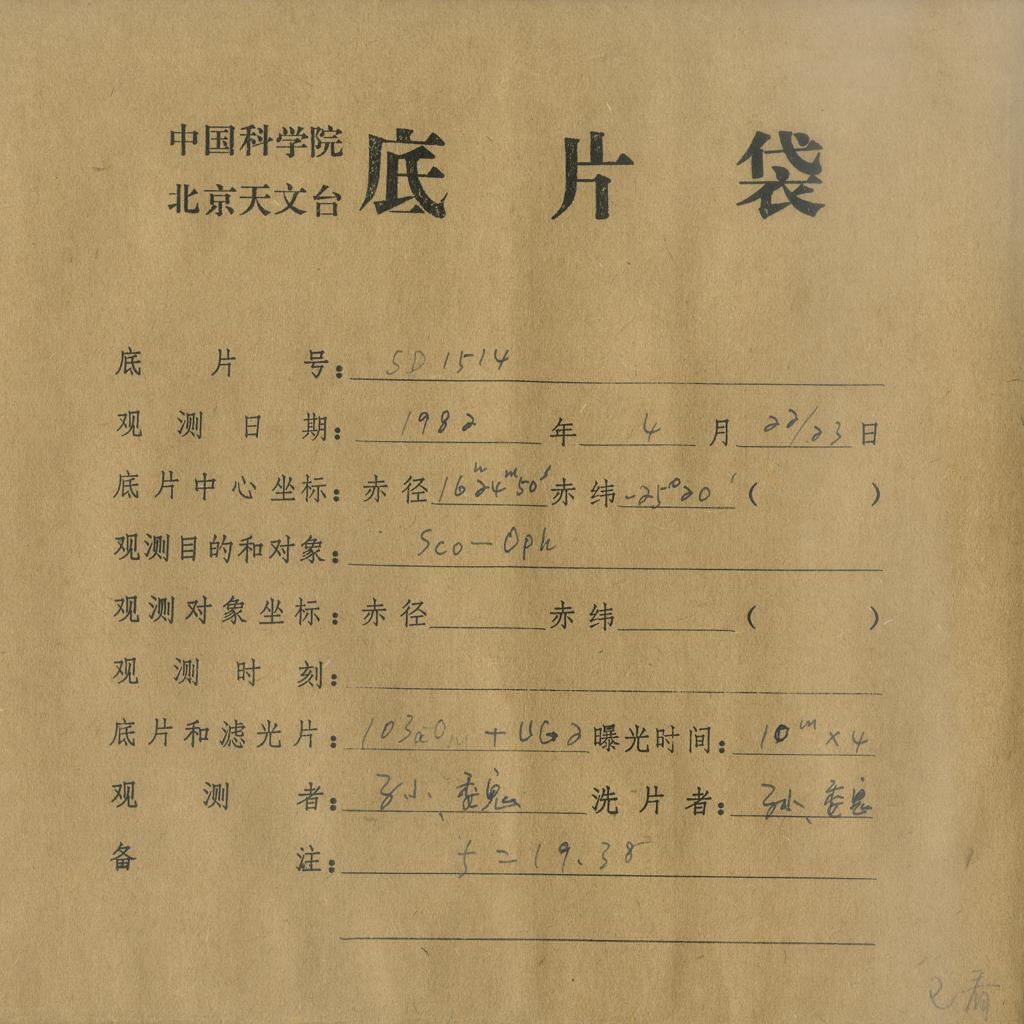 中国科学院
北京天文台 底片袋
底片号：SD 1514
观测日期：1982年4月22/23日
底片中心坐标：赤径16ʰ24ᵐ50ˢ赤纬-25°20′（ ）
观测目的和对象：Sco-Oph
观测对象坐标：赤径 赤纬 （ ）
观测时刻：
底片和滤光片：103aO + UG2 曝光时间：10ᵐ×4
观测者：孙小、 洗片者：孙小、
备注：f=19.38
已看